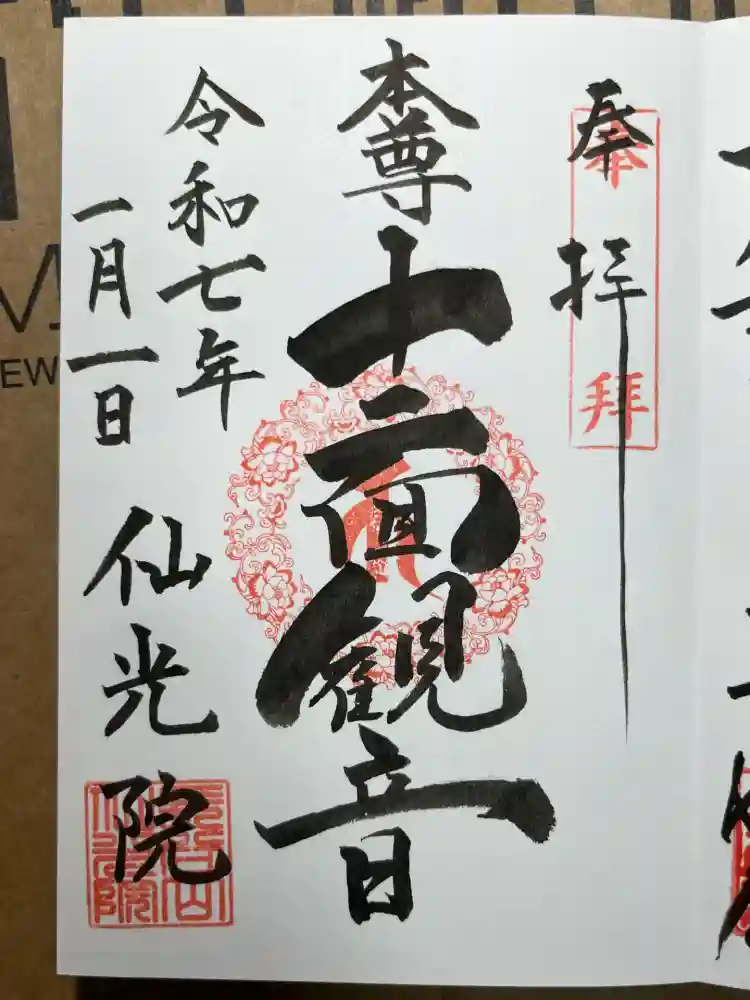 奉拝
奉拝
本尊
十一面観音
令和七年
一月一日
仙光院
EW